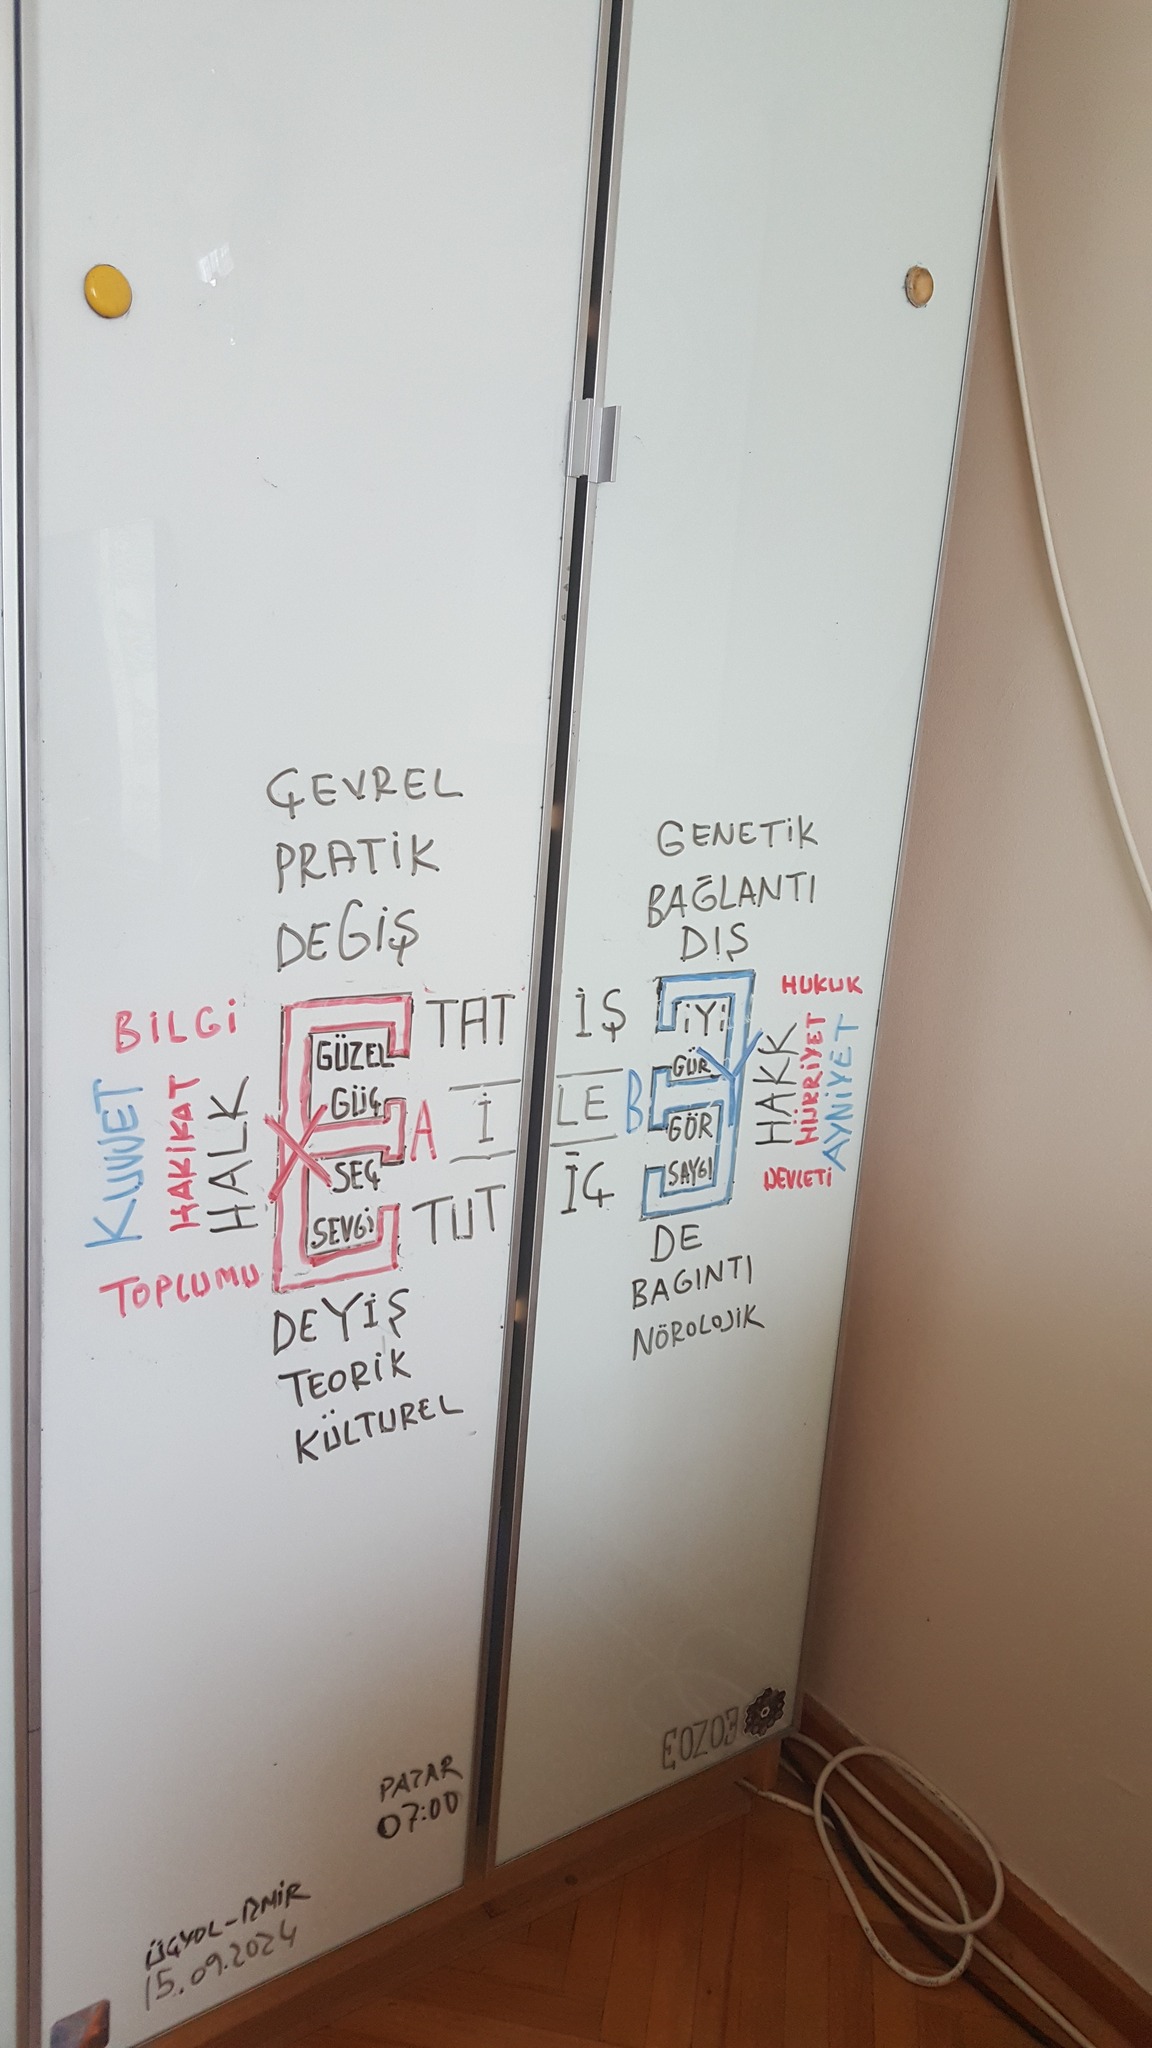 ÇEVREL
PRATİK
DEĞİŞ
BİLGİ
KUVVET
HAKİKAT
HALK
TOPLUMU
GÜZEL
GÜÇ
SEÇ
SEVGİ
A
TAT
İ
TUT
DEYİŞ
TEORİK
KÜLTÜREL
GENETİK
BAĞLANTI
DIŞ
İŞ
LE
İÇ
B
İYİ
GÜR
GÖR
SAYGI
HUKUK
HAKK
HÜRRİYET
AYNİYET
DEVLETİ
DE
BAGINTI
NÖROLOJİK
PAZAR
07:00
ÜÇYOL-İZMİR
15.09.2024